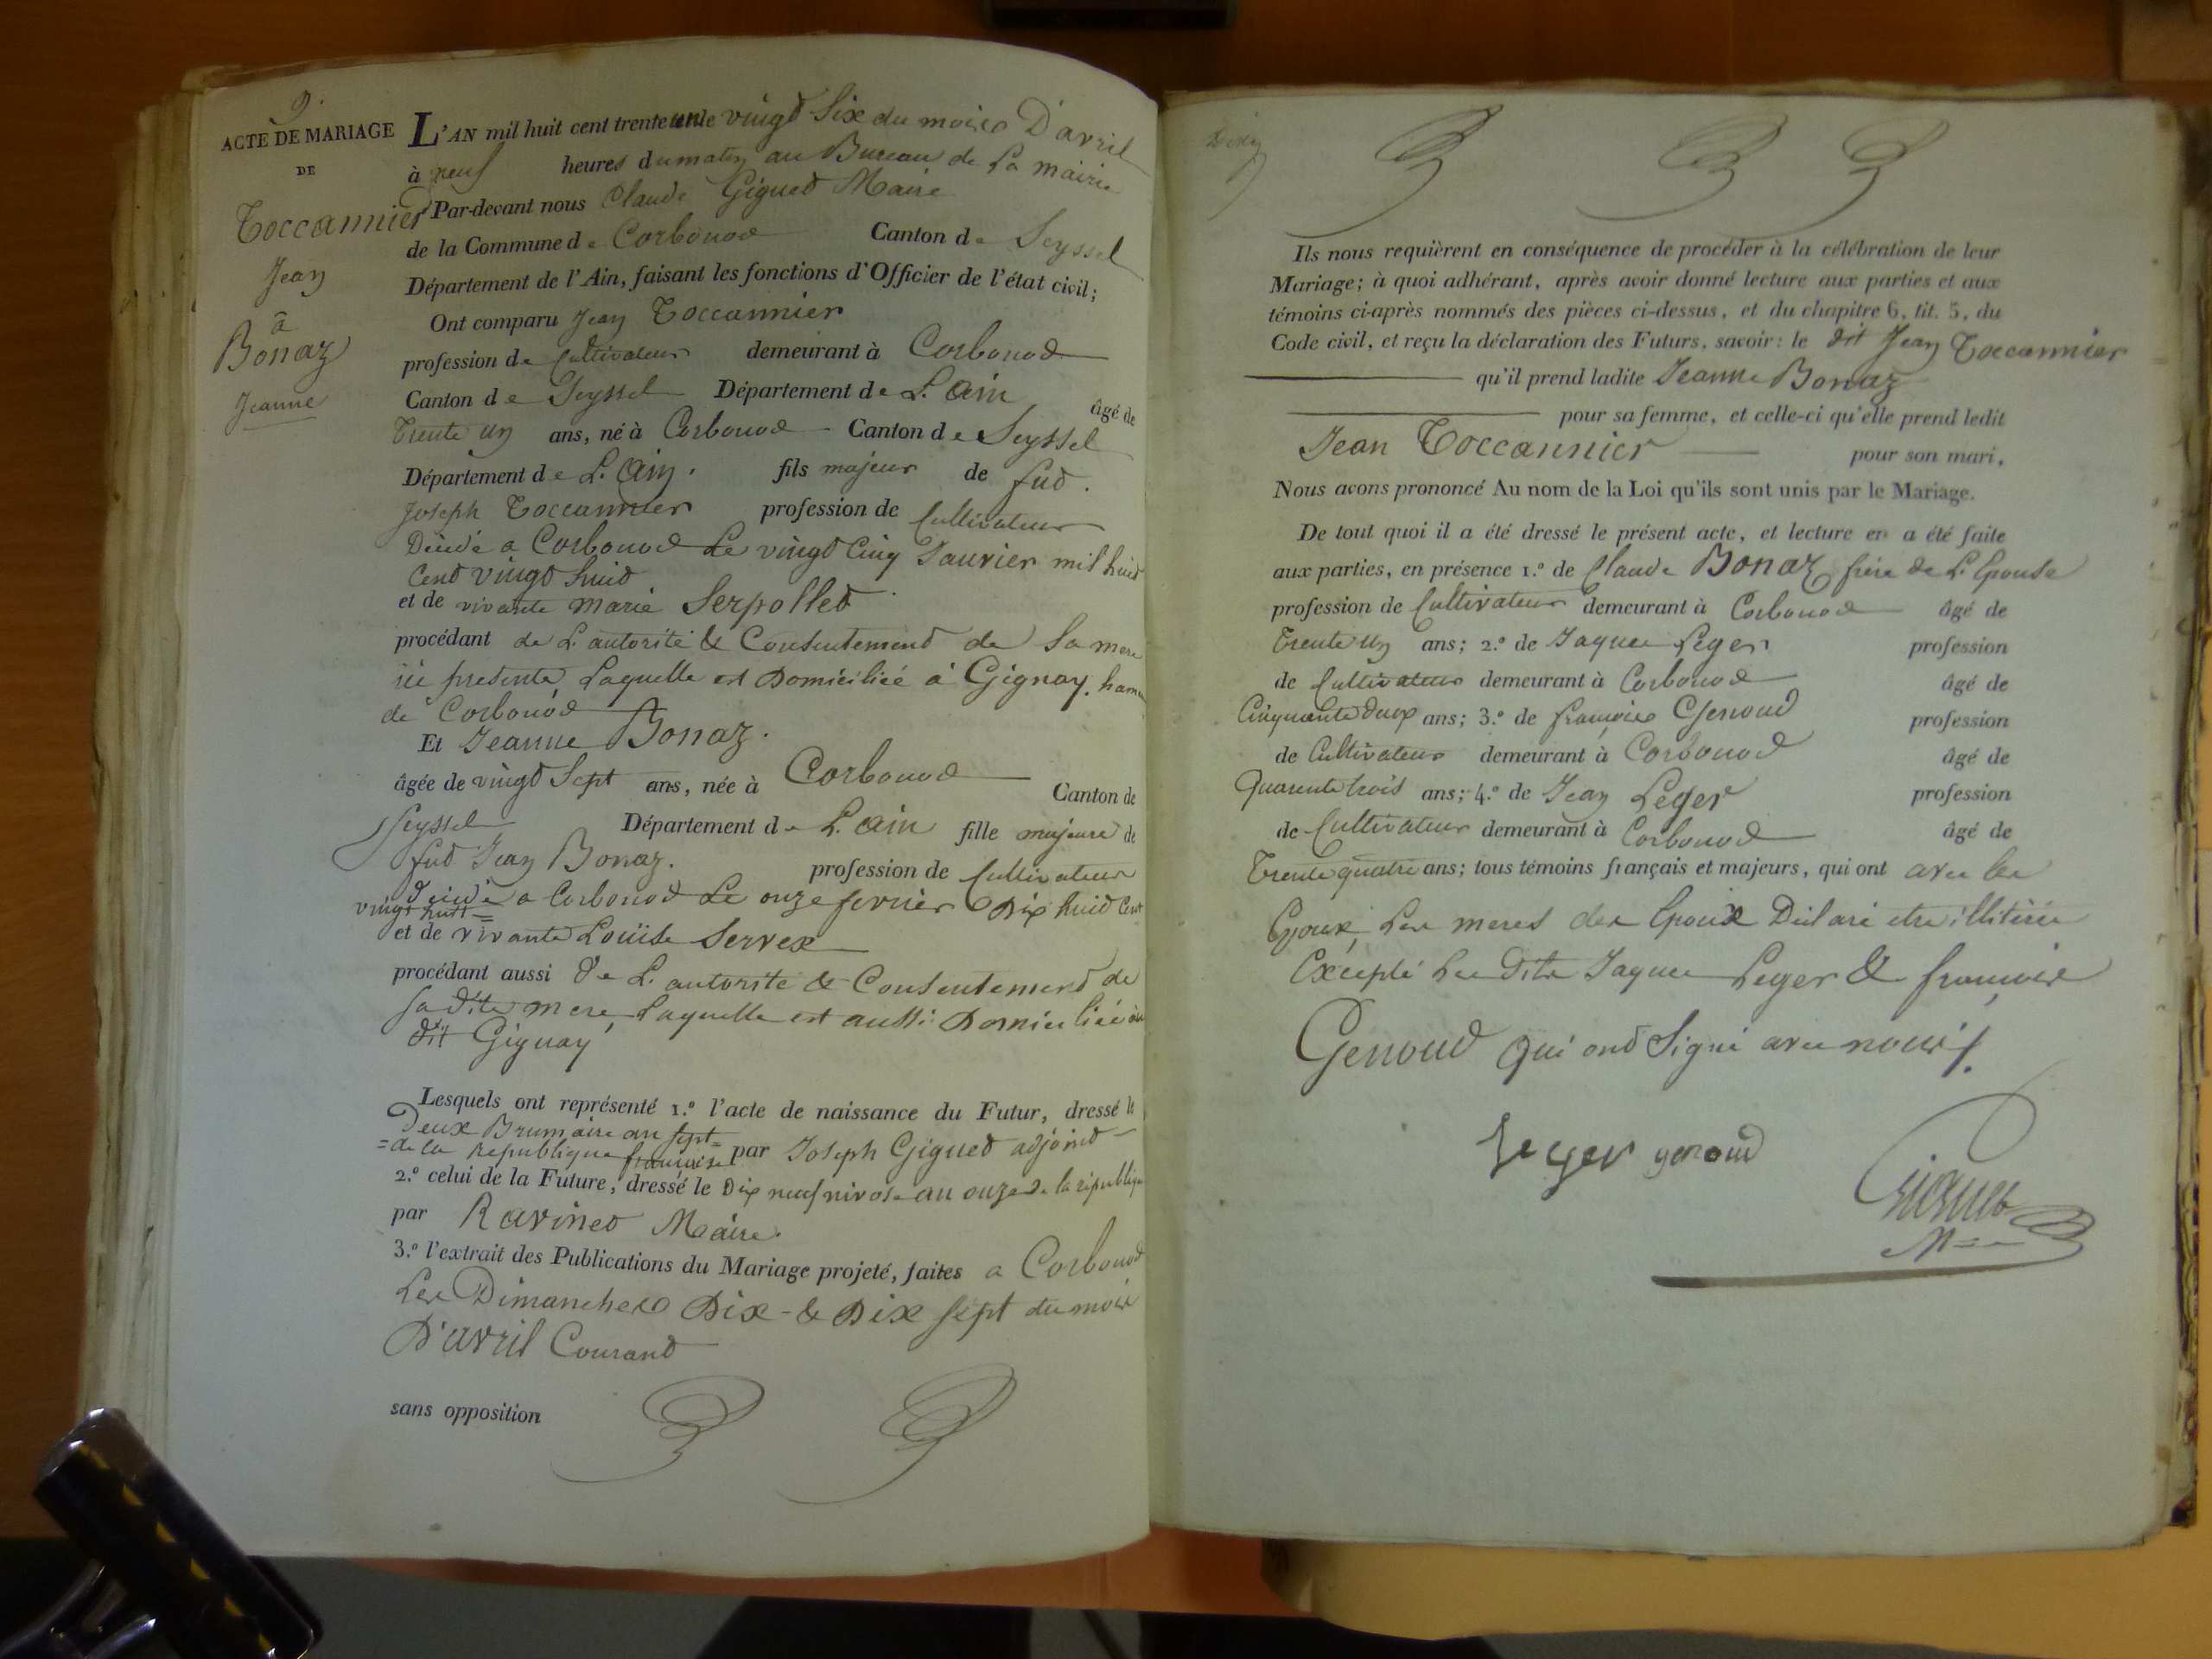 9.
ACTE DE MARIAGE
DE
Toccannier
Jean
à
Bonaz
Jeanne
L'AN mil huit cent trente un le vingt Six du mois D'avril
à neuf heures du matin au Bureau de La mairie
Par-devant nous Claude Giguet Maire
de la Commune de Corbonod Canton de Seyssel
Département de l'Ain, faisant les fonctions d'Officier de l'état civil;
Ont comparu Jean Toccannier
profession de Cultivateur demeurant à Corbonod
Canton de Seyssel Département de L'ain âgé de
Trente un ans, né à Corbonod Canton de Seyssel
Département de L'ain. fils majeur de fud.
Joseph Toccannier profession de Cultivateur
Décédé a Corbonod Le vingt Cinq Janvier mil huit
Cent vingt huit
et de vivante marie Serpollet
procédant de L'autorité & Consentement de Sa mere
ici presente, Laquelle est Domiciliée à Gignay, hameau
de Corbonod
Et Jeanne Bonaz.
âgée de vingt Sept ans, née à Corbonod Canton de
Seyssel Département de L'ain fille majeure de
fud Jean Bonaz. profession de Cultivateur
décédé a Corbonod Le onze fevrier Dix huit Cent
vingt huit =
et de vivante Louïse Servex
procédant aussi de L'autorité & Consentement de
sa dite mere Laquelle est aussi Domiciliée au
dit Gignay
Lesquels ont représenté 1.º l'acte de naissance du Futur, dressé le
Deux Brumaire an sept =
= de la Republique francaise par Joseph Giguet adjoint
2.º celui de la Future, dressé le Dix neuf nivose an onze de la républiq
par Ravinet Maire.
3.º l'extrait des Publications du Mariage projeté, faites a Corbonod
Les Dimanches Dix - & Dix sept du mois
D'avril Courant
sans opposition
Ils nous requièrent en conséquence de procéder à la célébration de leur
Mariage; à quoi adhérant, après avoir donné lecture aux parties et aux
témoins ci-après nommés des pièces ci-dessus, et du chapitre 6, tit. 5, du
Code civil, et reçu la déclaration des Futurs, savoir: le dit Jean Toccannier
qu'il prend ladite Jeanne Bonaz
pour sa femme, et celle-ci qu'elle prend ledit
Jean Toccannier pour son mari,
Nous avons prononcé Au nom de la Loi qu'ils sont unis par le Mariage.
De tout quoi il a été dressé le présent acte, et lecture en a été faite
aux parties, en présence 1.º de Claude Bonaz frère de L'épouse
profession de Cultivateur demeurant à Corbonod âgé de
Trente un ans; 2.º de Jaques Leger profession
de Cultivateur demeurant à Corbonod âgé de
Cinquante deux ans; 3.º de françois Genoud profession
de Cultivateur demeurant à Corbonod âgé de
Quarente trois ans; 4.º de Jean Leger profession
de Cultivateur demeurant à Corbonod âgé de
Trente quatre ans; tous témoins français et majeurs, qui ont avec les
Epoux, Les meres des Epoux Déclaré etre illitérés
Excepté Les dits Jaques Leger & françois
Genoud qui ont Signé avec nous /.
Leger genoud
Giguet
M